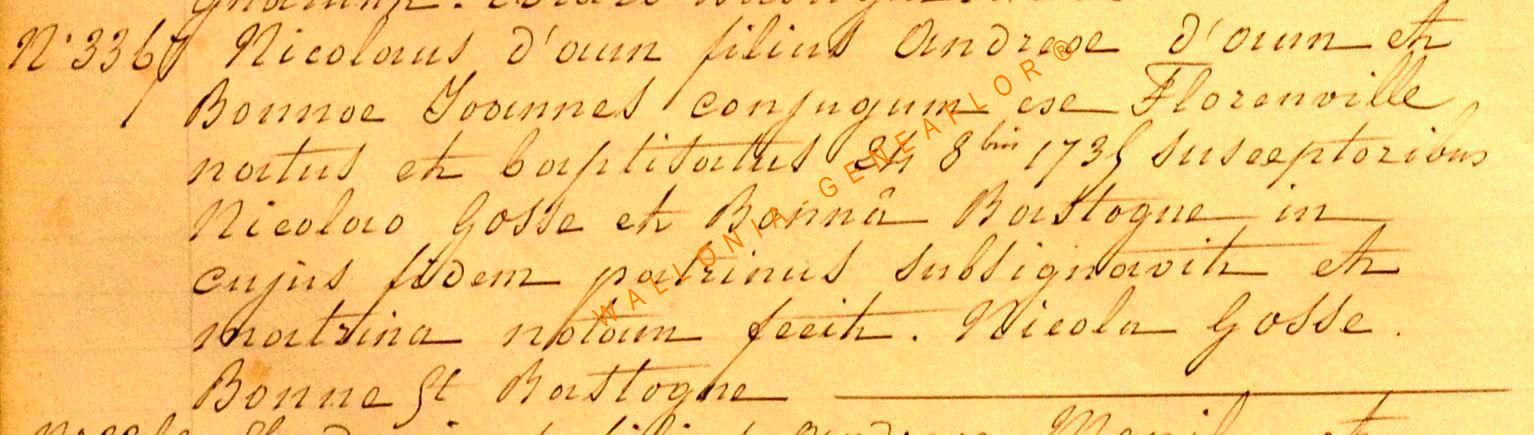 N° 3367 Nicolaus d'aum filius Andreae d'aum et
Bonnae Joannes conjugum ex Florenville
natus et baptisatus 24 8bris 1735 susceptoribus
Nicolao Gosse et Bonnâ Bastogne in
cujus fidem patrinus subsignavit et
matrina notam fecit. Nicola Gosse.
Bonne St Bastogne
WALLONIA-GENEAFLOR®